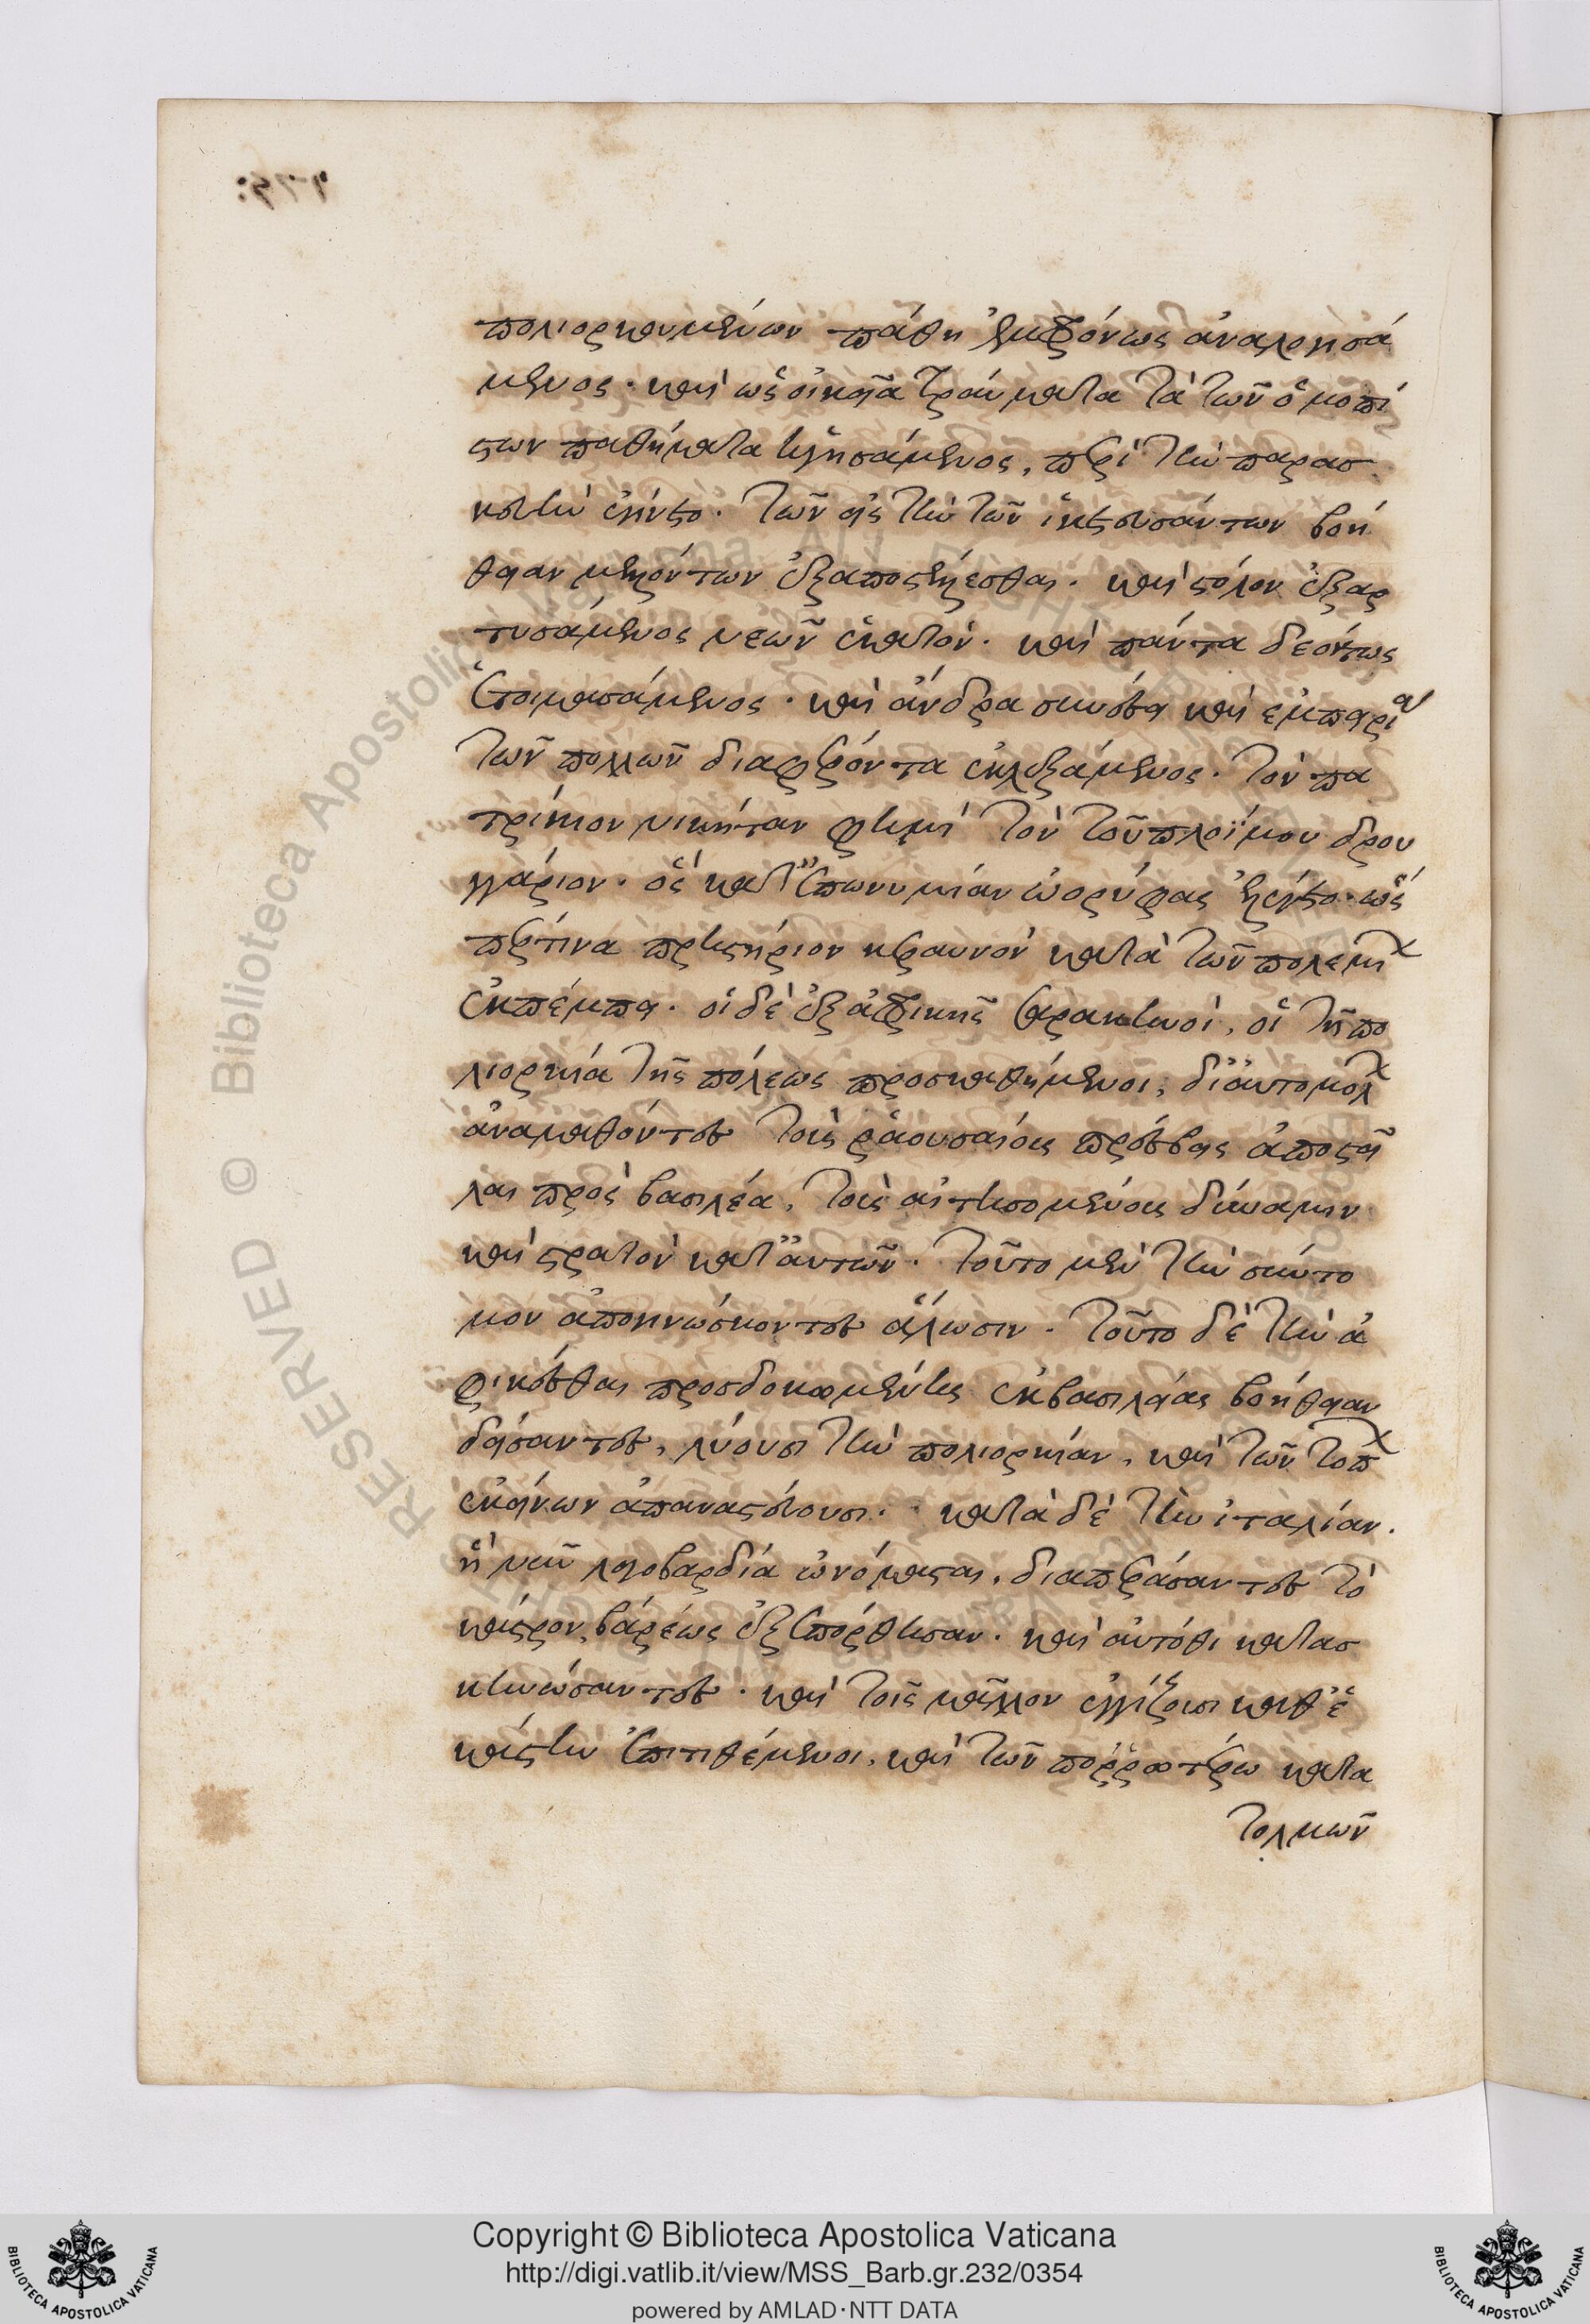 πολιορκουμένων πάθη ἐμφρόνως ἀναλογισά
μενος· καὶ ὡς οἰκεῖα τραύματα τὰ τῶν ὁμοπί
στων παθήματα ἡγησάμενος, περὶ τὴν παρασ
κευὴν ἐγένετο· τῶν εἰς τὴν τῶν ἱκετευσάντων βοή
θειαν μελλόντων ἐξαποστέλλεσθαι. καὶ στόλον ἐξαρ
τυσάμενος νεῶν ἑκατὸν· καὶ πάντα δεόντως
ἑτοιμασάμενος· καὶ ἄνδρα συνέσει καὶ ἐμπειρίᾳ
τῶν πολλῶν διαφέροντα ἐκλεξάμενος· τὸν πα
τρίκιον νικήταν φημὶ τὸν τοῦ πλοΐμου δρου
γγάριον· ὃς κατ' ἐπωνυμίαν ὠορύφας ἐλέγετο· ὥς
περ τινα πρηστήριον κεραυνὸν κατὰ τῶν πολεμί
ἐκπέμπει. οἱ δὲ ἐξ ἀφρικῆς σαρακηνοὶ, οἱ τῇ πο
λιορκία τῆς πόλεως προσκαθήμενοι, δι' αὐτομόλ
ἀναμαθόντες τοὺς ῥαουσαίους πρέσβεις ἀποστεῖ
λαι πρὸς βασιλέα, τοὺς αἰτησομένους δύναμιν
καὶ στρατὸν κατ' αὐτῶν· τοῦτο μὲν τὴν σύντο
μον ἀπογινώσκοντες ἅλωσιν. τοῦτο δὲ τὴν ἀ
φικέσθαι προσδοκωμένην ἐκ βασιλείας βοήθειαν
δείσαντες, λύουσι τὴν πολιορκίαν, καὶ τῶν τόπ
ἐκείνων ἀπαναστεύουσι. κατὰ δὲ τὴν ἰταλίαν.
ἣ νῦν λογοβαρδία ὠνόμασται, διαπεράσαντες τὸ
κάστρον βάρεως ἐξεπόρθησαν. καὶ αὐτόθι κατασ
κηνώσαντες· καὶ τοῖς μᾶλλον ἐγγίζουσι καθ' ἑ
κάστην ἐπιτιθέμενοι, καὶ τῶν πορρωτέρω κατα
τολμῶν